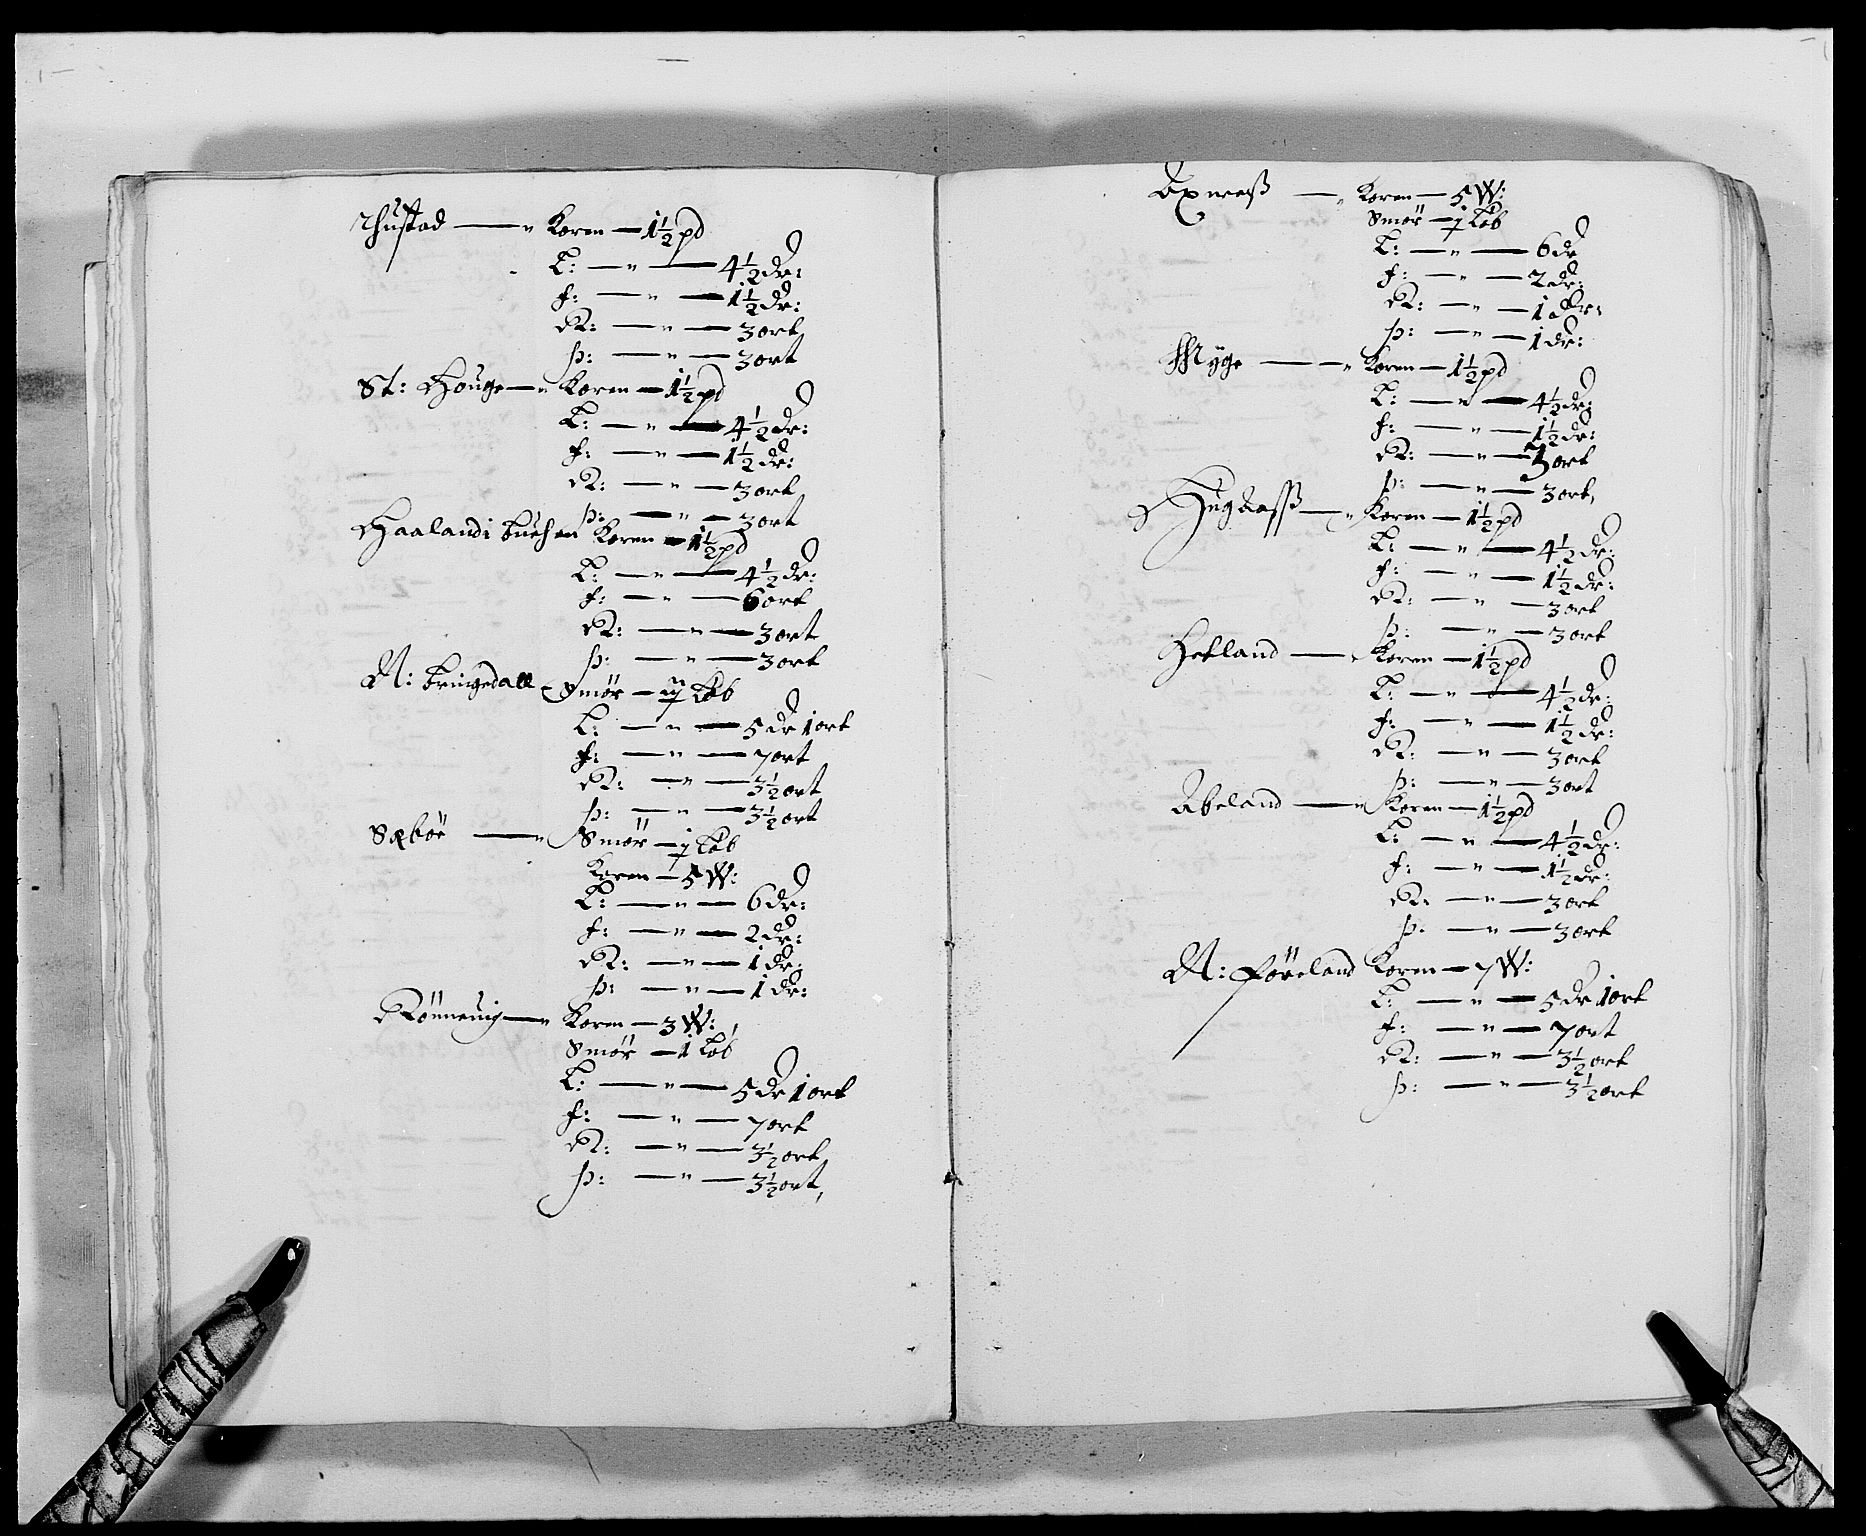 Thustad — " Koren — 1½ pd
L: — " — 4½ dr:
f: — " — 1½ dr:
R: — " — 3 ort
þ: — " — 3 ort
St: Houge — " Koren — 1½ pd
L: — " — 4½ dr:
f: — " — 1½ dr:
R: — " — 3 ort
þ: — " — 3 ort
Haaland i Koren — 1½ pd
L: — " — 4½ dr:
f: — " — 6 ort
R: — " — 3 ort
þ: — " — 3 ort
N: bringedall Smör — Löb
L: — " — 5 dr 1 ort
f: — " — 7 ort
R: — " — 3½ ort
þ: — " — 3½ ort
Sæböe — " Smör — Löb
Koren — 5 W:
L: — " — 6 dr:
f: — " — 2 dr:
R: — " — 1 dr:
þ: — " — 1 dr:
Rönneuig — " Koren — 3 W:
Smör — 1 Löb
L: — " — 5 dr 1 ort
f: — " — 7 ort
R: — " — 3½ ort
þ: — " — 3½ ort,
— " Koren — 5 W:
Smör — Löb
L: — " — 6 dr
f: — " — 2 dr:
R: — " — 1 dr:
þ: — " — 1 dr:
Myge — " Koren — 1½ pd
L: — " — 4½ dr:
f: — " — 1½ dr:
R: — " — 3 ort
þ: — " — 3 ort,
— " Koren — 1½ pd
L: — " — 4½ dr:
f: — " — 1½ dr:
R: — " — 3 ort
þ: — " — 3 ort
Hetland — " Koren — 1½ pd
L: — " — 4½ dr:
f: — " — 1½ dr:
R: — " — 3 ort
þ: — " — 3 ort
Abeland — " Koren — 1½ pd
L: — " — 4½ dr:
f: — " — 1½ dr:
R: — " — 3 ort
þ: — " — 3 ort
N: Föreland Koren — 7 W:
L: — " — 5 dr 1 ort
f: — " — 7 ort
R: — " — 3½ ort
þ: — " — 3½ ort